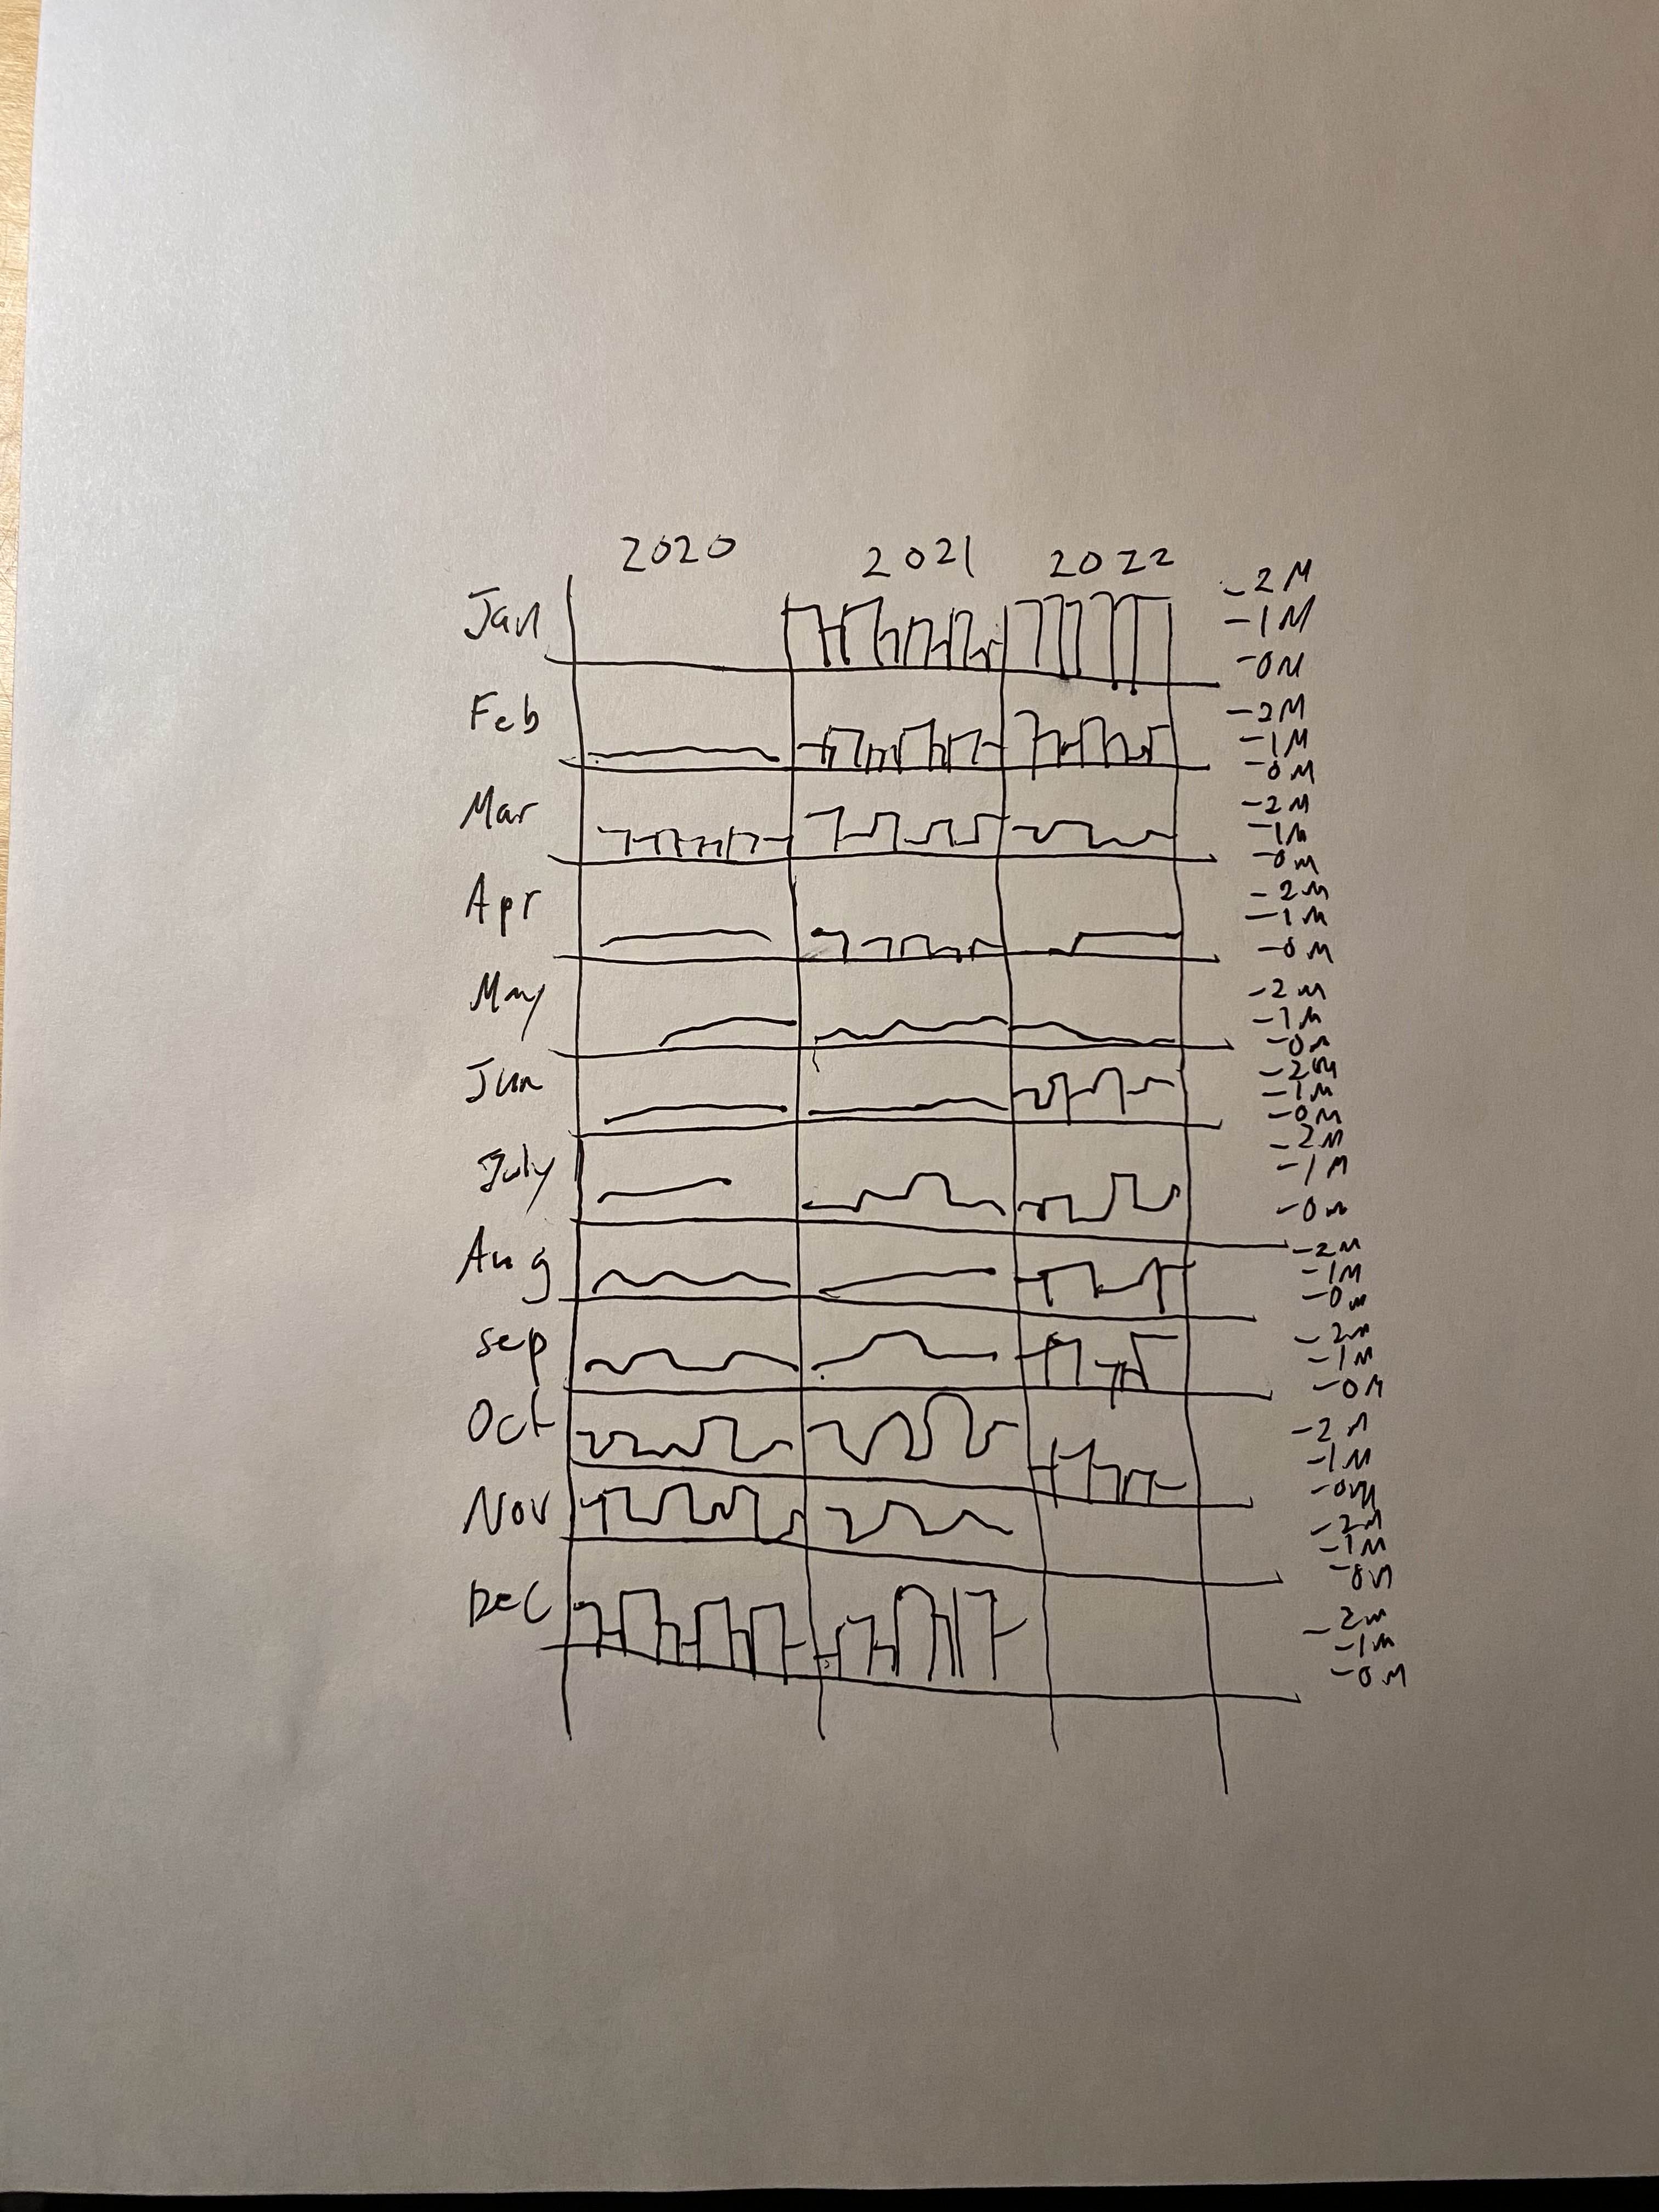 2020 2021 2022
-2M
Jan -1M
-0M
Feb -2M
-1M
-0M
Mar -2M
-1M
-0M
Apr -2M
-1M
-0M
May -2M
-1M
-0M
Jun -2M
-1M
-0M
July -2M
-1M
-0M
Aug -2M
-1M
-0M
sep -2M
-1M
-0M
Oct -2M
-1M
-0M
Nov -2M
-1M
-0M
Dec -2M
-1M
-0M